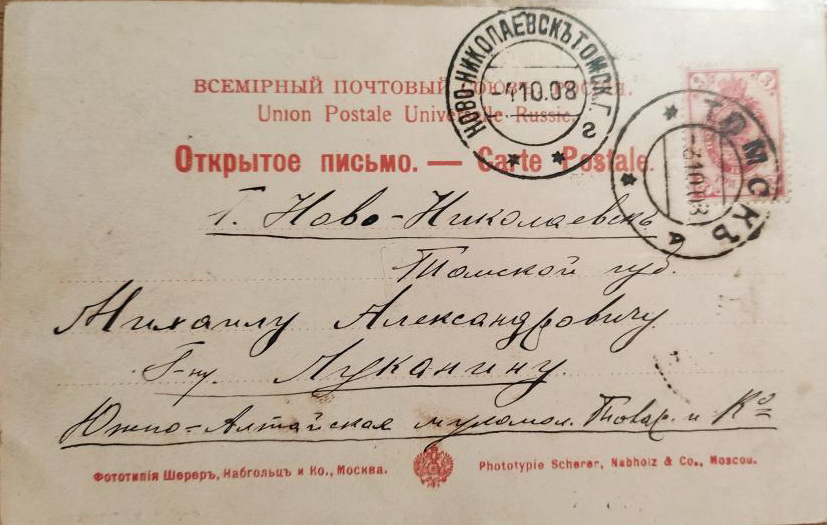 ВСЕМІРНЫЙ ПОЧТОВЫЙ СОЮЗЪ. РОССІЯ.
Union Postale Universelle Russie.
Открытое письмо. — Carte Postale.
НОВО-НИКОЛАЕВСКЪ ТОМСК.Г.
-4 10.08
2
ТОМСКЪ
-3 10 08
А
3
Г. Ново-Николаевскъ
Томской губ.
Михаилу Александровичу
Г-ну Луканину
Южно-Алтайская мукомол. Товар. и Ко
Фототипія Шереръ, Набгольцъ и Ко., Москва.
Phototypie Scherer, Nabholz & Co., Moscou.